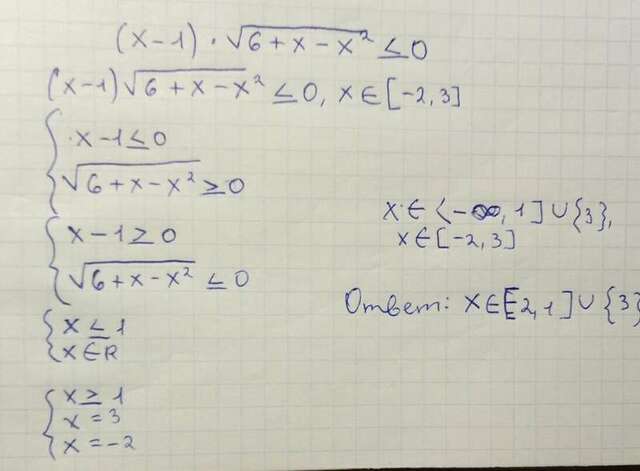 (x-1)·√(6+x-x²) ≤ 0
(x-1)√(6+x-x²) ≤ 0, x∈[-2,3]
{ x-1≤0
√(6+x-x²) ≥ 0
{ x-1≥0
√(6+x-x²) ≤ 0
{ x≤1
x∈R
{ x≥1
x=3
x=-2
x∈⟨-∞,1]∪{3},
x∈[-2,3]
Ответ: x∈[2,1]∪{3}